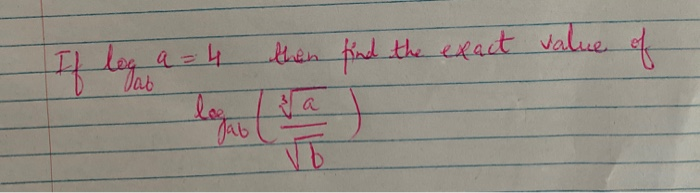 If log_ab a = 4 then find the exact value of
log_ab (∛a / √b)